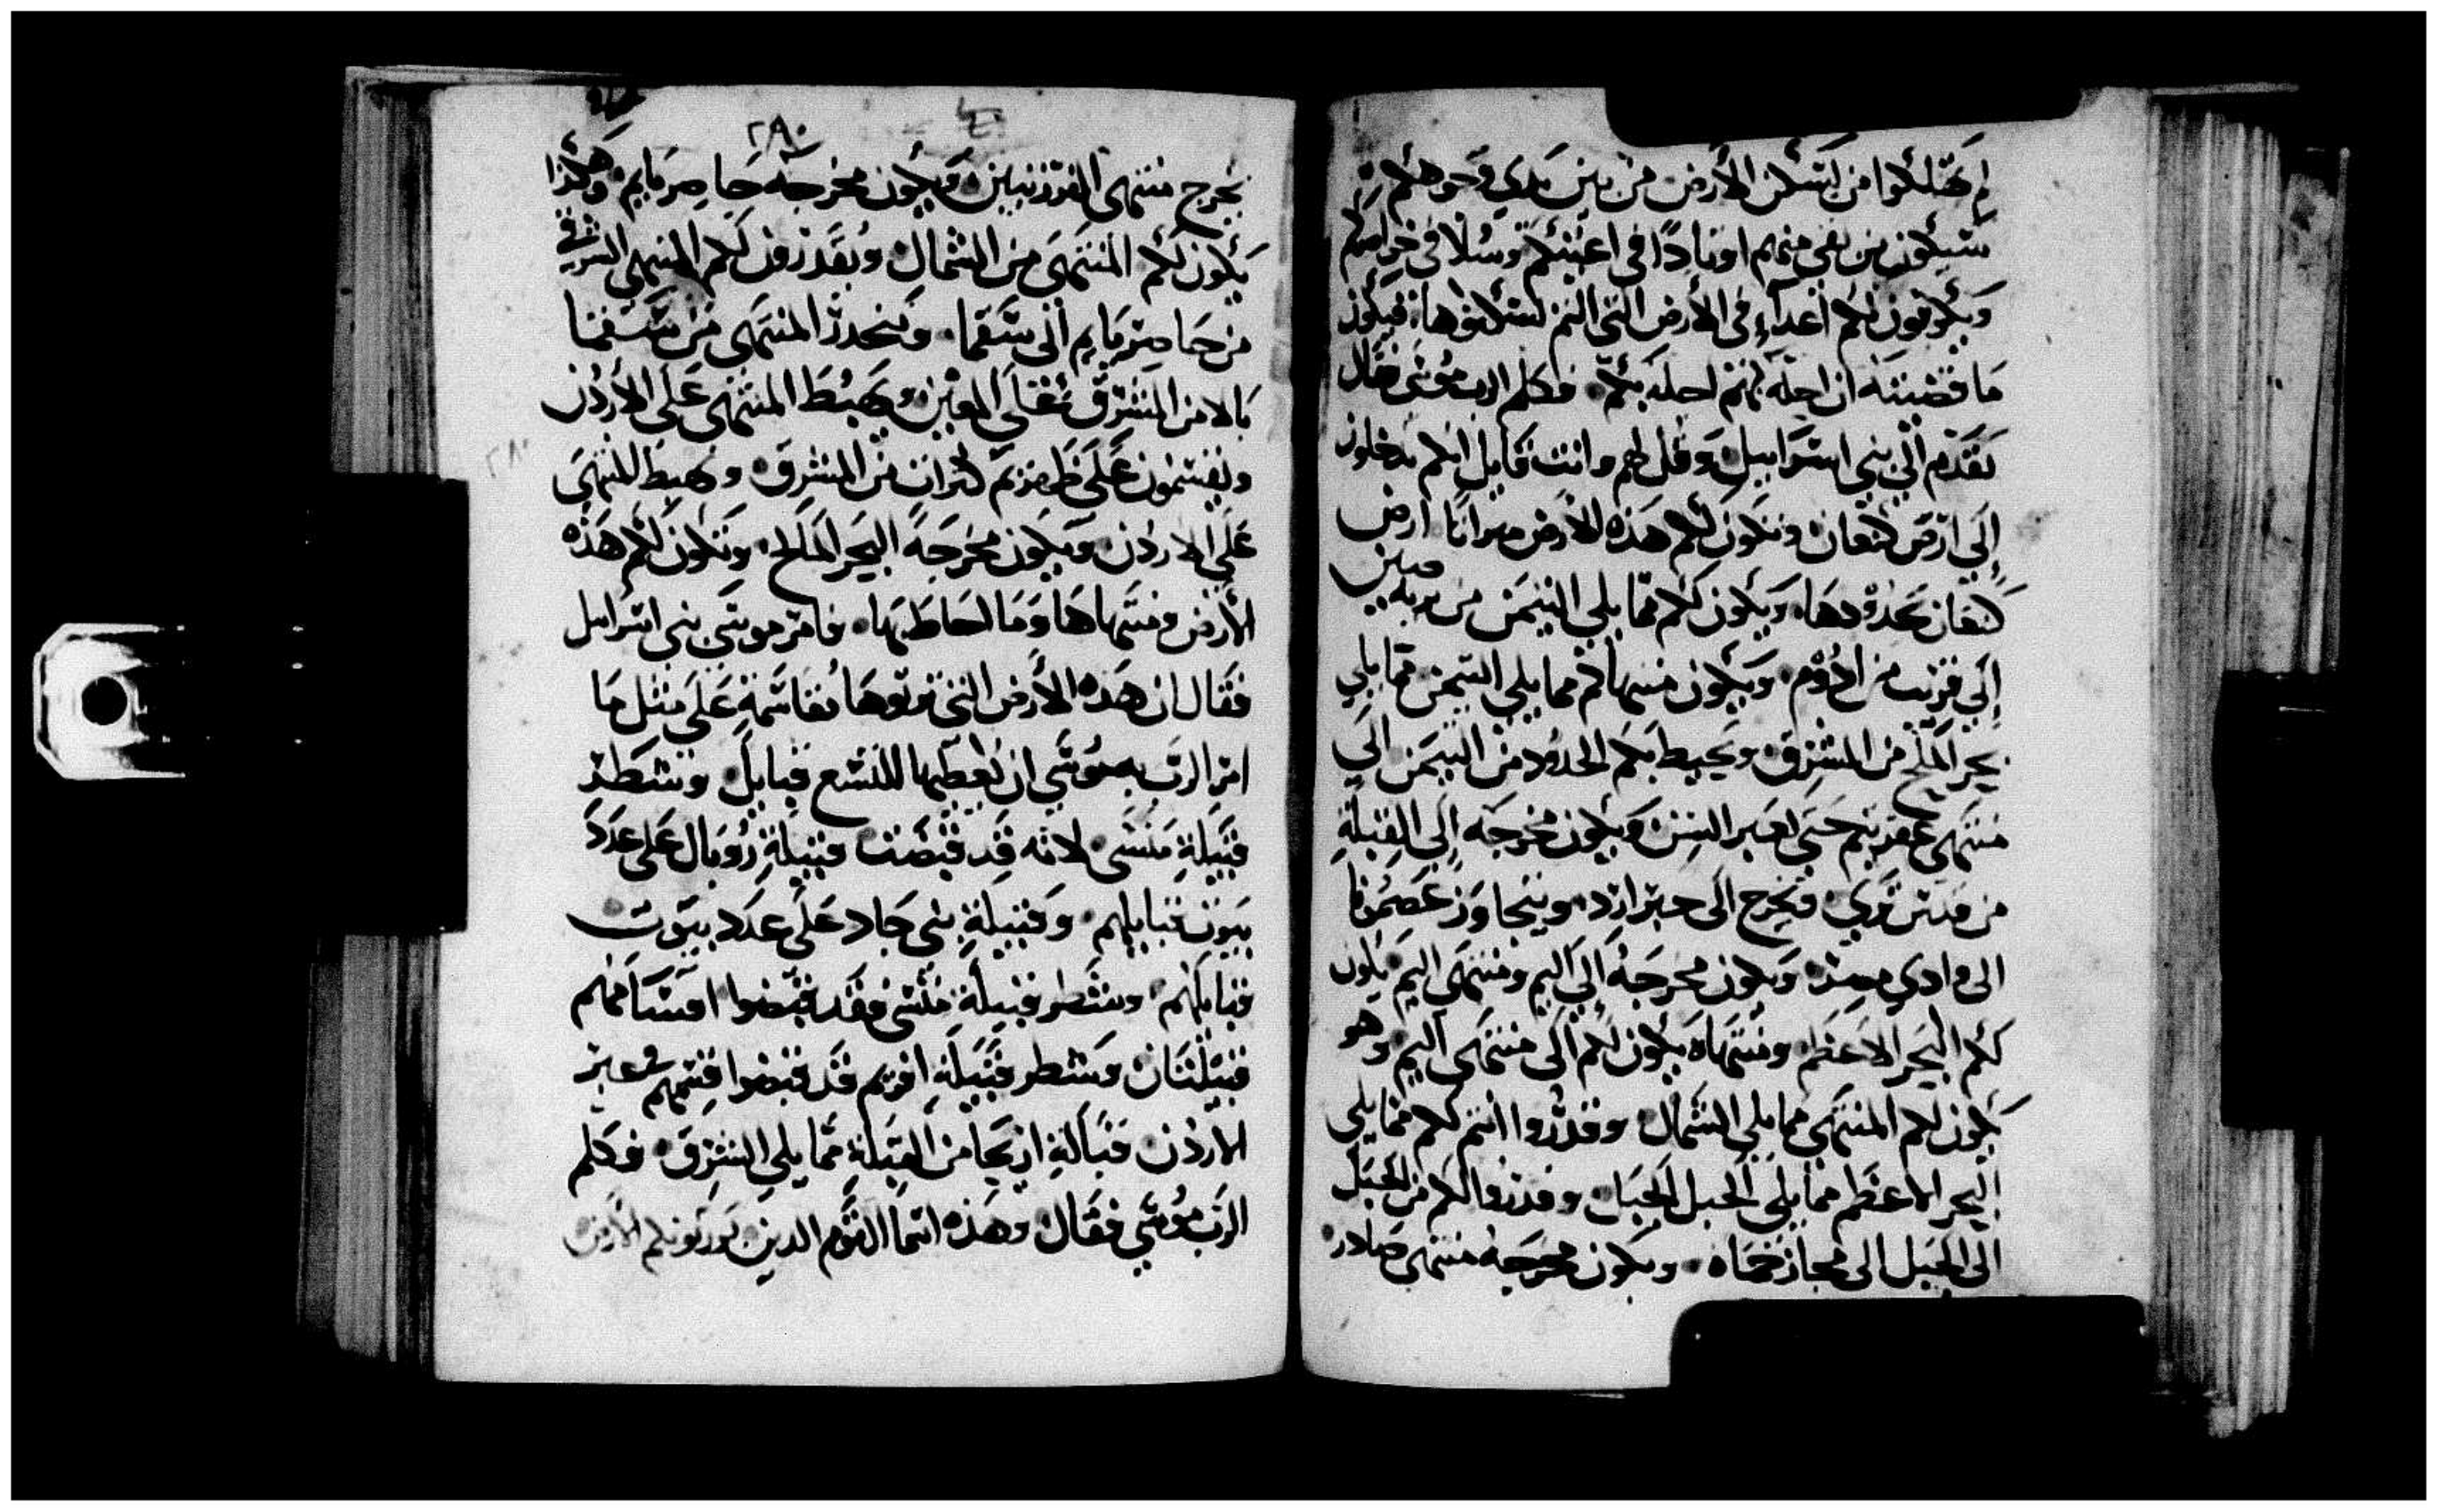 لم تهلكوا من يسكن الأرض من بين يدي وجوهكم
سيكون من بقي منهم اوتادًا في اعينكم وسُلّا في خواصركم
ويكونون لكم اعداء في الأرض التي انتم تسكنوها، فيكون
ما قضيته ان احله بهم احله بكم فكلم الرب موسى فقال
تقدم الى بني اسراييل وقل لهم وانت قايل انكم تدخلون
إلى ارض كنعان وتكون لكم هذه الأرض ميراثا ارض
كنعان بحدودها، ويكون لكم مما يلي التيمن من برية صين
إلى قرب من ادوم ويكون منتهاكم مما يلي التيمن مما يلي
بحر الملح من المشرق ويحيط بكم الحدود من التيمن الى
منتهى عقربيم حتى تعبر السين ويكون مخرجه إلى القبلة
من قدس برني فتخرج الى حبر ارد، ويتجاوز عصمونا
الى وادي مصر ويكون مخرجه إلى اليم ومنتهى اليم يكون
لكم البحر الاعظم ومنتهاه يكون لكم الى منتهى اليم وهو
يكون لكم المنتهى مما يلي الشمال وقدروا انتم لكم مما يلي
البحر الاعظم مما يلي الجبل الجبل وقدروا لكم من الجبل
الى الجبل الى مجاز حماه ويكون مخرجه منتهى صادر
٢٨٠
يخرج منتهى الفرزنيين ويكون مخرجه حاصرمايم وهكذا
يكون لكم المنتهى من الشمال وتقدرون لكم المنتهى الشرقي
من حاصرمايم الى سقما وينحدر المنتهى من سقما
بالا من المشرق على المعين ويهبط المنتهى على الأردن
على ظهر كنرات من المشرق وهبط المنتهى
على الاردن ويكون مخرجه البحر الملح وتكون لكم هذه
الأرض ومنتهاها وما احاط بها، فامر موسى بني اسراييل
فقال ان هذه الأرض التي ترثوها مقاسمة على مثل ما
امر الرب به موسى ان نعطيها للتسع قبايل وشطر
قبيلة منسى لانه قد قبضت قبيلة روبال على عدد
بيوت قبايلهم وقبيلة بني جاد على عدد بيوت
قبايلهم وشطر قبيلة منسى فقد قبضوا اقسامهم
قبيلتان وشطر قبيلة افريم قد قبضوا قسمهم في عبر
الاردن قبالة اريحا من القبلة مما يلي الشرق فكلم
الرب موسى فقال وهذه اسما القوم الدين يورثونكم الأرض